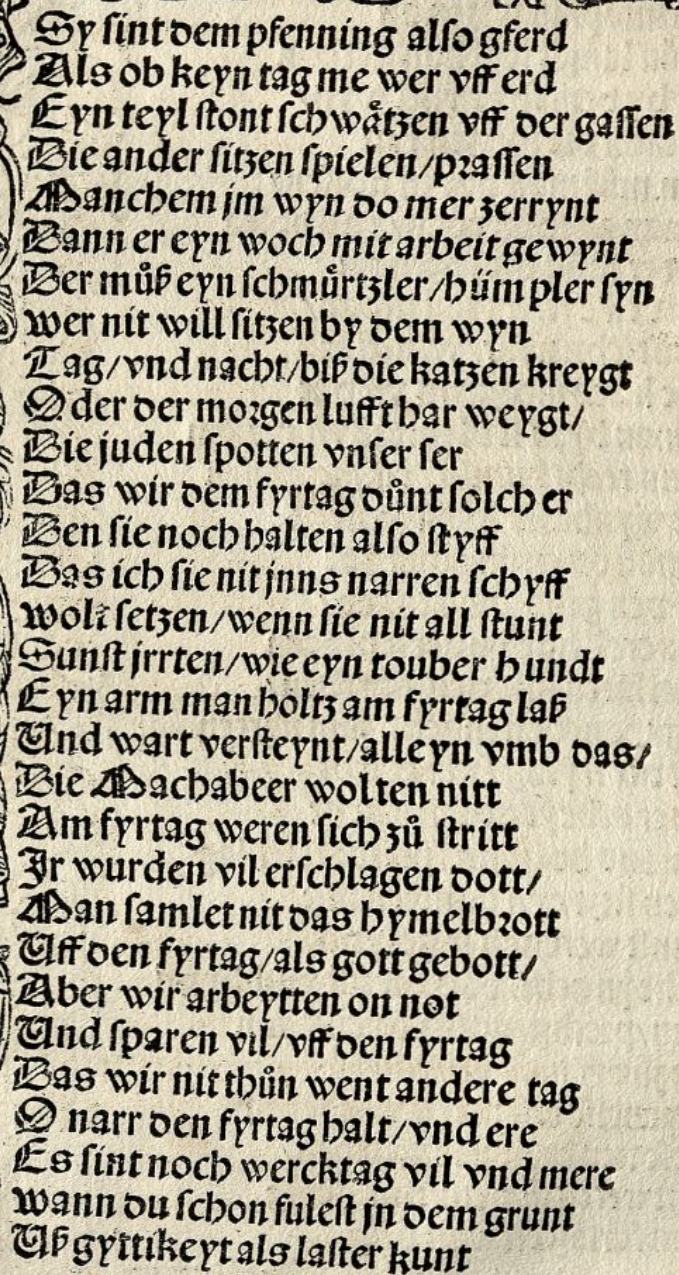 Sy sint dem pfenning also gferd
Als ob keyn tag me wer vff erd
Eyn teyl stont schwåtzen vff der gassen
Die ander sitzen spielen/prassen
Manchem jm wyn do mer zerrynt
Dann er eyn woch mit arbeit gewynt
Der můß eyn schmůrtzler/hümpler syn
wer nit will sitzen by dem wyn
Tag/vnd nacht/biß die katzen kreygt
Oder der morgen lufft har weygt/
Die juden spotten vnser ser
Das wir dem fyrtag důnt solch er
Den sie noch halten also styff
Das ich sie nit jnns narren schyff
wolt setzen/wenn sie nit all stunt
Sunst jrrten/wie eyn touber hundt
Eyn arm man holtz am fyrtag laß
Und wart versteynt/alleyn vmb das/
Die Machabeer wolten nitt
Am fyrtag weren sich zů stritt
Jr wurden vil erschlagen dott/
Man samlet nit das hymelbrott
Uff den fyrtag/als gott gebott/
Aber wir arbeytten on not
Und sparen vil/vff den fyrtag
Das wir nit thůn went andere tag
O narr den fyrtag halt/vnd ere
Es sint noch wercktag vil vnd mere
wann du schon fulest jn dem grunt
Uß gyttikeyt als laster kunt